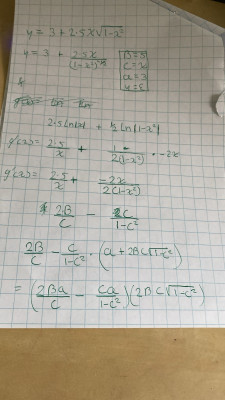 y = 3 + 2.5x√(1-x²)
y = 3 + 2.5x/(1-x²)^0.5
B=5
C=2
a=3
u=5
&
2.5 ln|x| + ½ ln(1-x²)
g'(x) = 2.5/x + 1/2(1-x²) · -2x
g'(x) = 2.5/x + -2x/2(1-x²)
2B/C - C/1-C²
2B/C - C/1-C² · (a + 2BC√(1-C²))
= (2Ba/C - Ca/1-C²)(2BC√(1-C²))